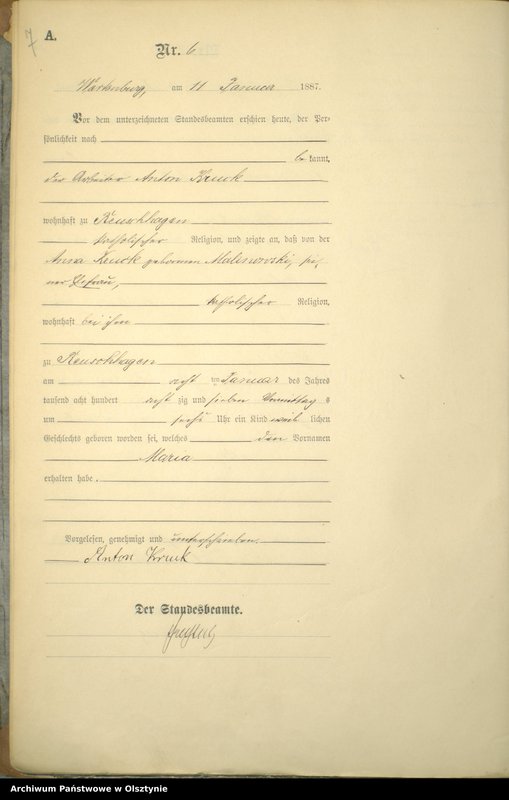 7
A.
Nr. 6
Wartenburg, am 11 Januar 1887.
Vor dem unterzeichneten Standesbeamten erschien heute, der Per-
sönlichkeit nach
be kannt,
der Arbeiter Anton Kruck
wohnhaft zu Reuschhagen
katholischer Religion, und zeigte an, daß von der
Anna Kruck geborenen Malinowski, sei-
ner Ehefrau,
katholischer Religion,
wohnhaft bei ihm
zu Reuschhagen
am acht ten Januar des Jahres
tausend acht hundert acht zig und sieben Vormittag s
um sechs Uhr ein Kind weib lichen
Geschlechts geboren worden sei, welches den Vornamen
Maria
erhalten habe.
Vorgelesen, genehmigt und unterschrieben.
Anton Kruck
Der Standesbeamte.
Archiwum Państwowe w Olsztynie